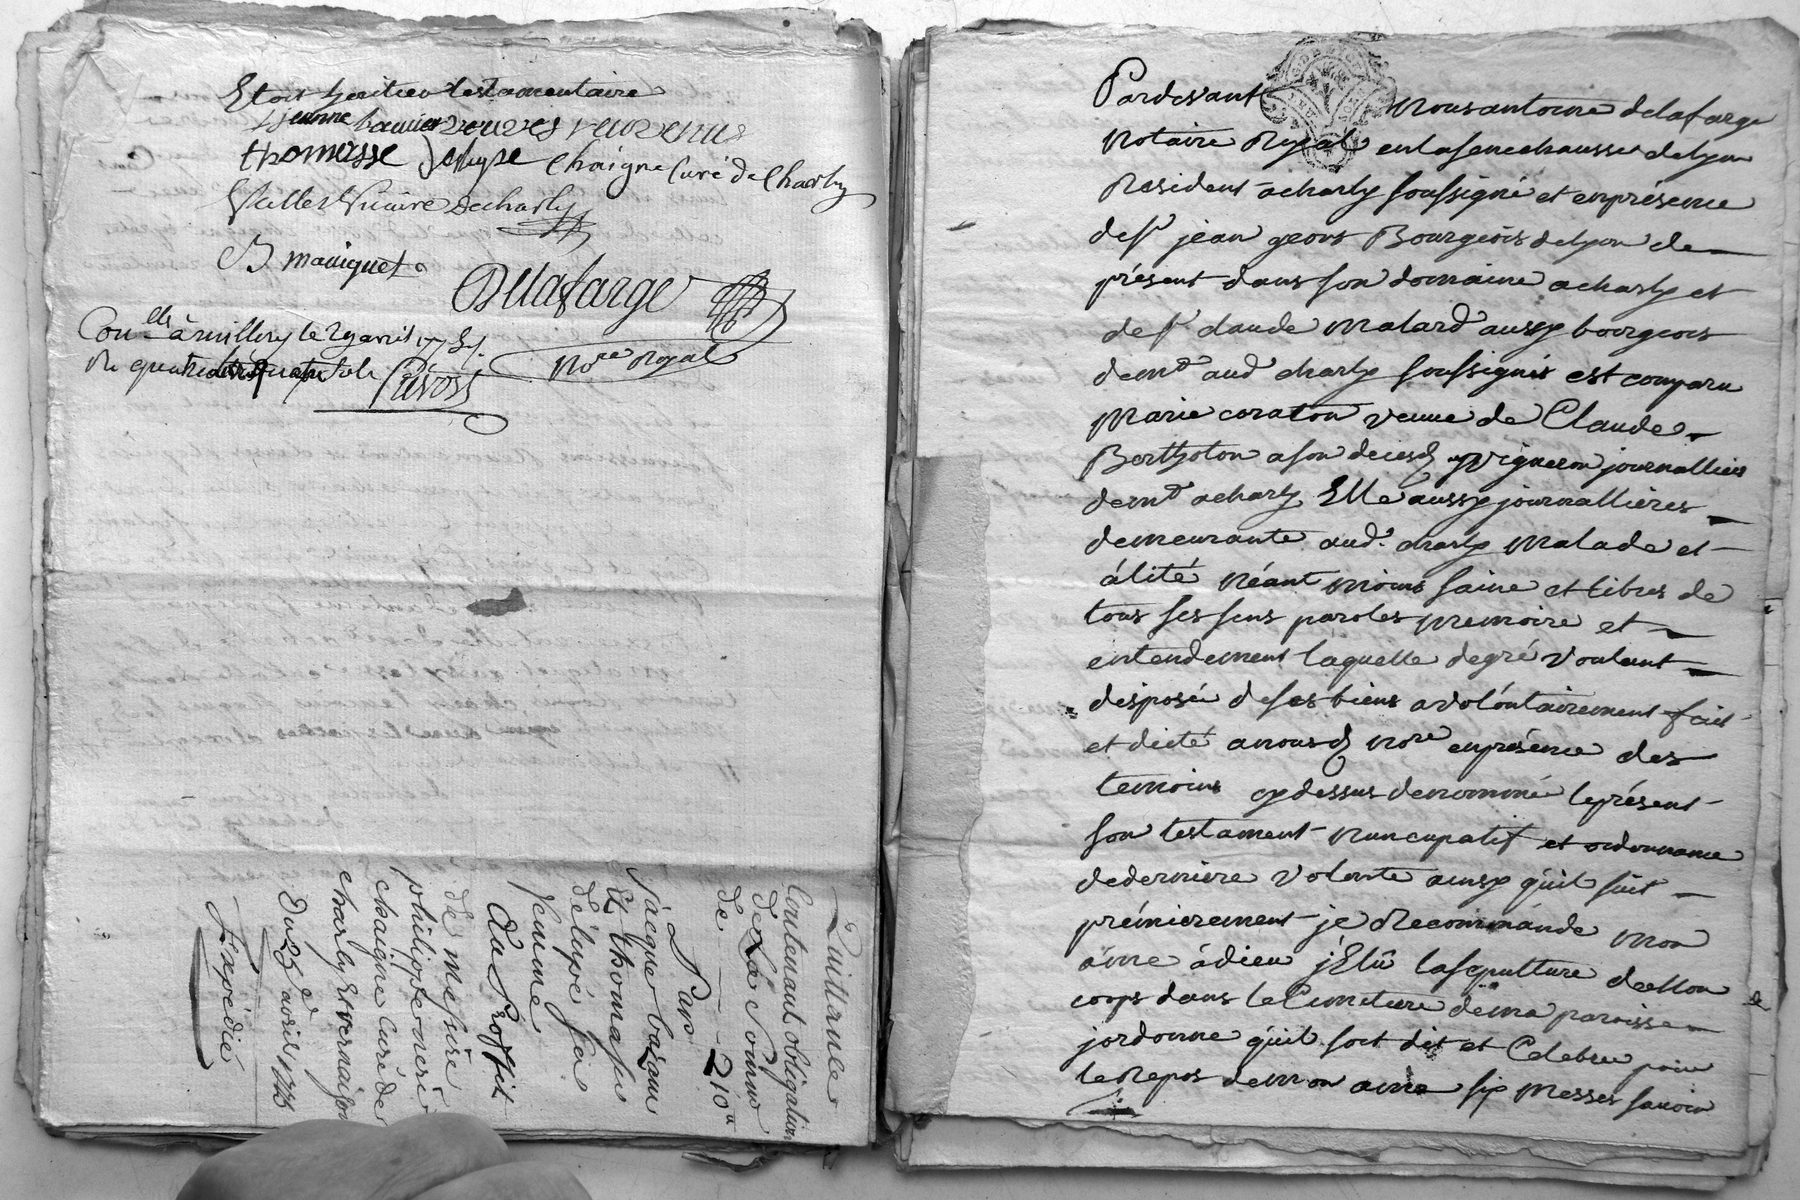 Et soit heritier testamentaire
jeanne
thomasse delupé Chaigne Curé de Charly
Valles Vicaire de charly
B maniquet
Delafarge
Con.elle à millery le 29 avril
No.re Royal
Re quatre
Prevost
Quittance
Contenant obligation
de La Somme
de - - - 210
Par
Jacque bazeau
Et thomasse
delupé sa
femme
Au Proffit
de Messire
philippe neri
chaigne curé de
charly Et vernaison
Du 25e avril
Expédie
Pardevant Nous antoine delafarge
Notaire Royal en la senechaussee de lyon
Resident a charly soussigné et en présence
de sr jean geons Bourgeois de lyon de
présent dans son domaine a charly et
de sr claude Malard aussy bourgeois
demt aud charly soussignés est comparu
Marie coraton veuve de Claude
Bertholon a son deces vigneron journallier
demt a charly Elle aussy journallieres
demeurante aud. charly Malade et
alité néant moins saine et libres de
tous ses sens paroles memoire et
entendement laquelle de gré voulant
desposée de ses biens a volontairement fait
et dicté a nousd Nore en présence des
temoins cy dessus denommé le présent
son testament Nuncupatif et ordonnance
de derniere volonte ainsy qu'il suit
prémierement je Recommande mon
ame à dieu j'Elû la sepulture de Mon
corps dans le Cimeture de ma paroisse
jordonne qu'il soit dit et Celebree pour
le Repos de mon ame six Messes savoir